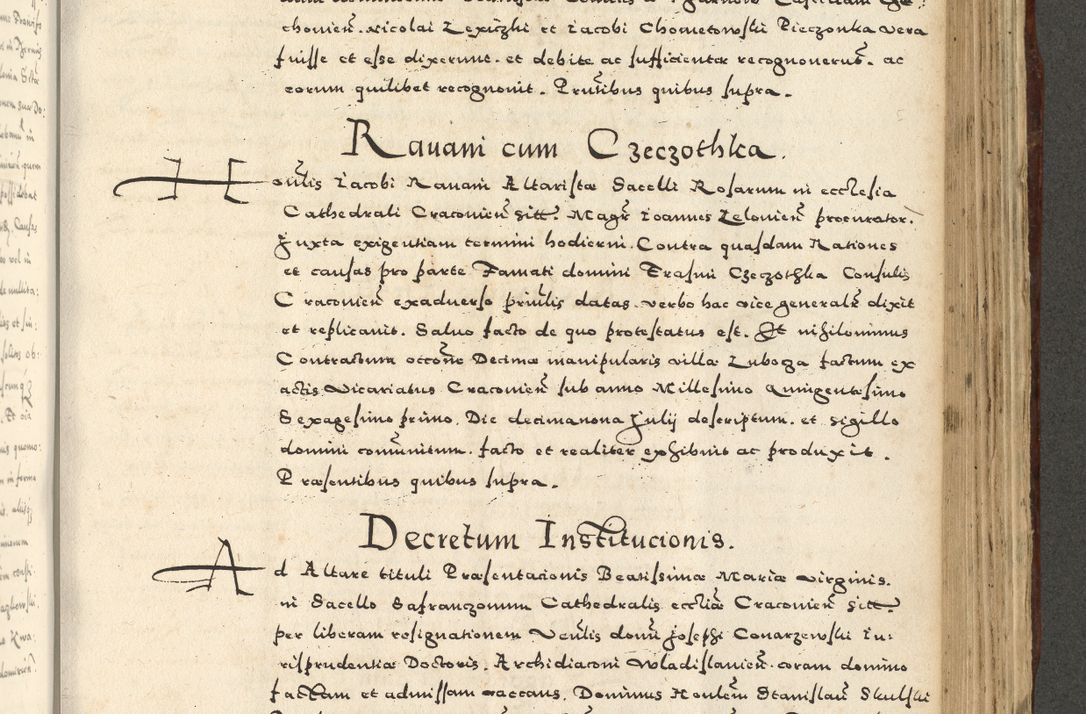 chonien. Nicolai Zexiczki et Iacobi Chometowski Pieczonka vera
fuisse et esse dixerunt. et debite ac sufficienter recognouerut. ac
eorum quilibet recognouit. Prntibus quibus supra.
Rauani cum Czeczothka.
Honlis Iacobi Rauani Altaristæ Sacelli Rosarum in ecclesia
Cathedrali Cracouien sitt. Magr Ioannes Zelonien procurator.
Juxta exigentiam termini hodierni. Contra quasdam Rationes
et causas pro parte Famati domini Erasmi Czeczothka Consulis
Cracouien exaduerso priulis datas. verbo hac vice generale dixit
et replicauit. Saluo facto de quo protestatus est. Et nihilominus
Contractum occone Decimæ manipularis villæ Lubocza factum ex
actis Vicariatus Cracouien sub anno Millesimo Quingentesimo
Sexagesimo primo. Die decimanona Julij descriptum. et sigillo
domini comunitum. facto et realiter exhibuit ac produxit.
Præsentibus quibus supra.
Decretum Institucionis.
Ad Altare tituli Præsentacionis Beatissimæ Mariæ virginis.
in Sacello Safranczonum Cathedralis eccliæ Cracouien sitt.
per liberam resignationem Venlis domi Josephi Conarzewski Iu:
risprudentiæ Doctoris. Archidiaconi Wladislauien. coram domino
factam et admissam vaccans. Dominus Honlem Stanislau Skulski